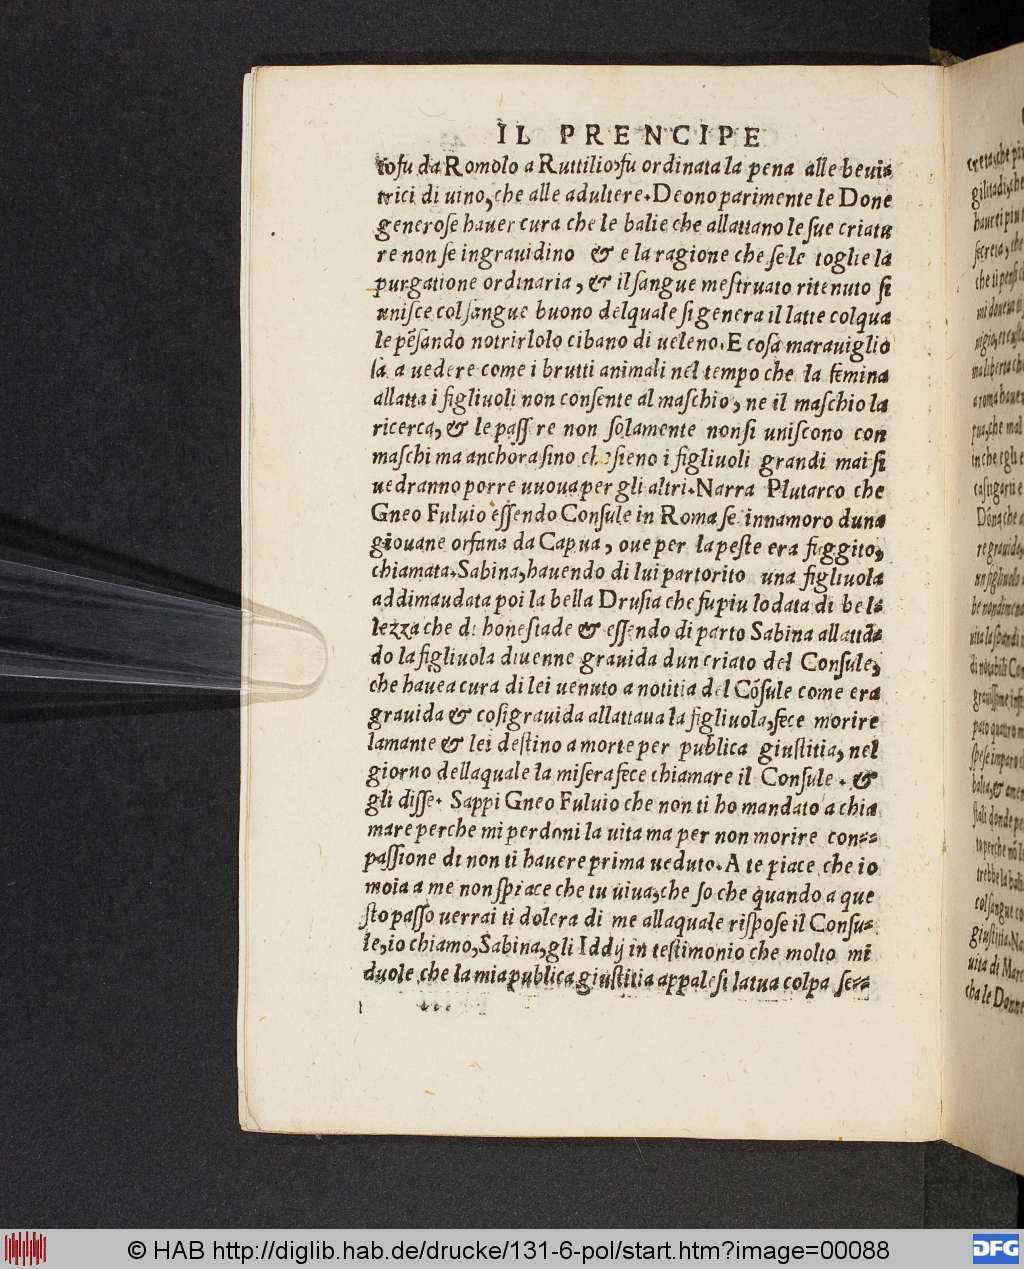 IL PRENCIPE
to fu da Romolo a Ruttilio, fu ordinata la pena alle beui⸗
trici di uino, che alle adultere. Deono parimente le Done
generose hauer cura che le balie che allattano le sue criatu
re non se ingrauidino & e la ragione che se le toglie la
purgatione ordinaria, & il sangue mestruato ritenuto si
unisce col sangue buono del quale si genera il latte colqua
le pēsando notrirlolo cibano di ueleno. E cosa marauiglio
sa a uedere come i brutti animali nel tempo che la femina
allatta i figliuoli non consente al maschio, ne il maschio la
ricerca, & le passere non solamente non si uniscono con
maschi ma anchora sino che sieno i figliuoli grandi mai si
uedranno porre uuoua per gli altri. Narra Plutarco che
Gneo Fuluio essendo Consule in Roma se innamoro duna
giouane orfana da Capua, oue per la peste era fuggito,
chiamata. Sabina, hauendo di lui partorito una figliuola
addimaudata poi la bella Drusia che fu piu lodata di bel⸗
lezza che di honestade & essendo di parto Sabina allattā⸗
do la figliuola diuenne grauida dun criato del Consule,
che hauea cura di lei uenuto a notitia del Cōsule come era
grauida & cosi grauida allattaua la figliuola, fece morire
lamante & lei destino a morte per publica giustitia, nel
giorno dellaquale la misera fece chiamare il Consule . &
gli disse. Sappi Gneo Fuluio che non ti ho mandato a chia
mare perche mi perdoni la uita ma per non morire con⸗
passione di non ti hauere prima ueduto. A te piace che io
moia a me non spiace che tu uiua, che so che quando a que
sto passo uerrai ti dolera di me allaquale rispose il Consu⸗
le, io chiamo, Sabina, gli Iddij in testimonio che molto mi
duole che la mia publica giustitia appalesi la tua colpa se⸗
© HAB http://diglib.hab.de/drucke/131-6-pol/start.htm?image=00088
DFG